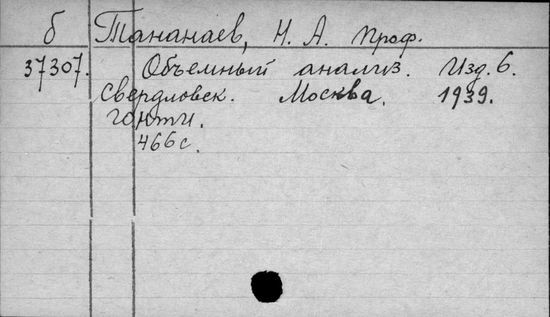 б Тананаев, Н. А. проф.
37307. Объемный анализ. Изд. 6.
Свердловск. Москва. 1939.
гонти.
466 с.